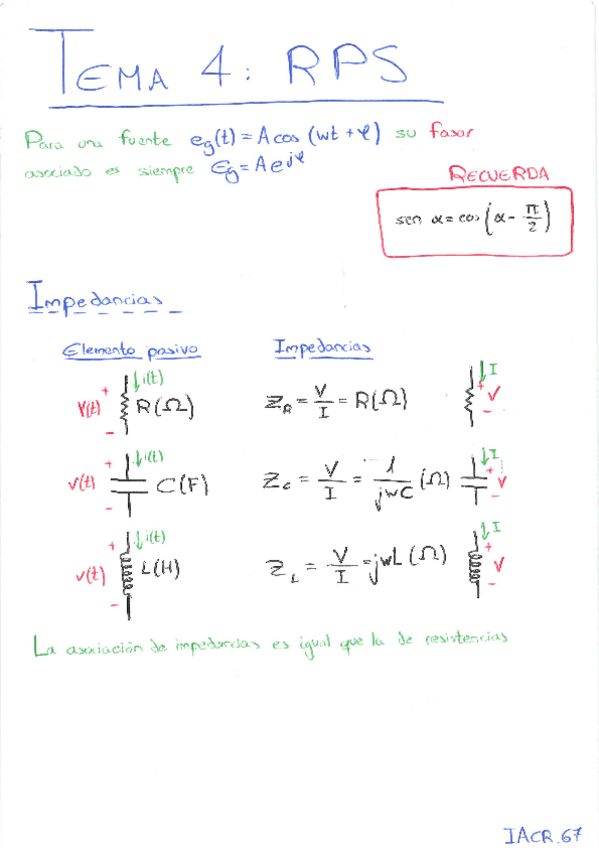 TEMA 4: RPS
Para una fuente eg(t) = A cos (wt + φ) su fasor
asociado es siempre Eg = A e^jφ
RECUERDA
sen α = cos (α - π/2)
Impedancias
Elemento pasivo Impedancias
V(t) + - i(t) R(Ω) Z_R = V/I = R(Ω) I + V -
v(t) + - i(t) C(F) Z_C = V/I = 1/jwC (Ω) I + V -
v(t) + - i(t) L(H) Z_L = V/I = jwL (Ω) I + V -
La asociación de impedancias es igual que la de resistencias
IACR.67